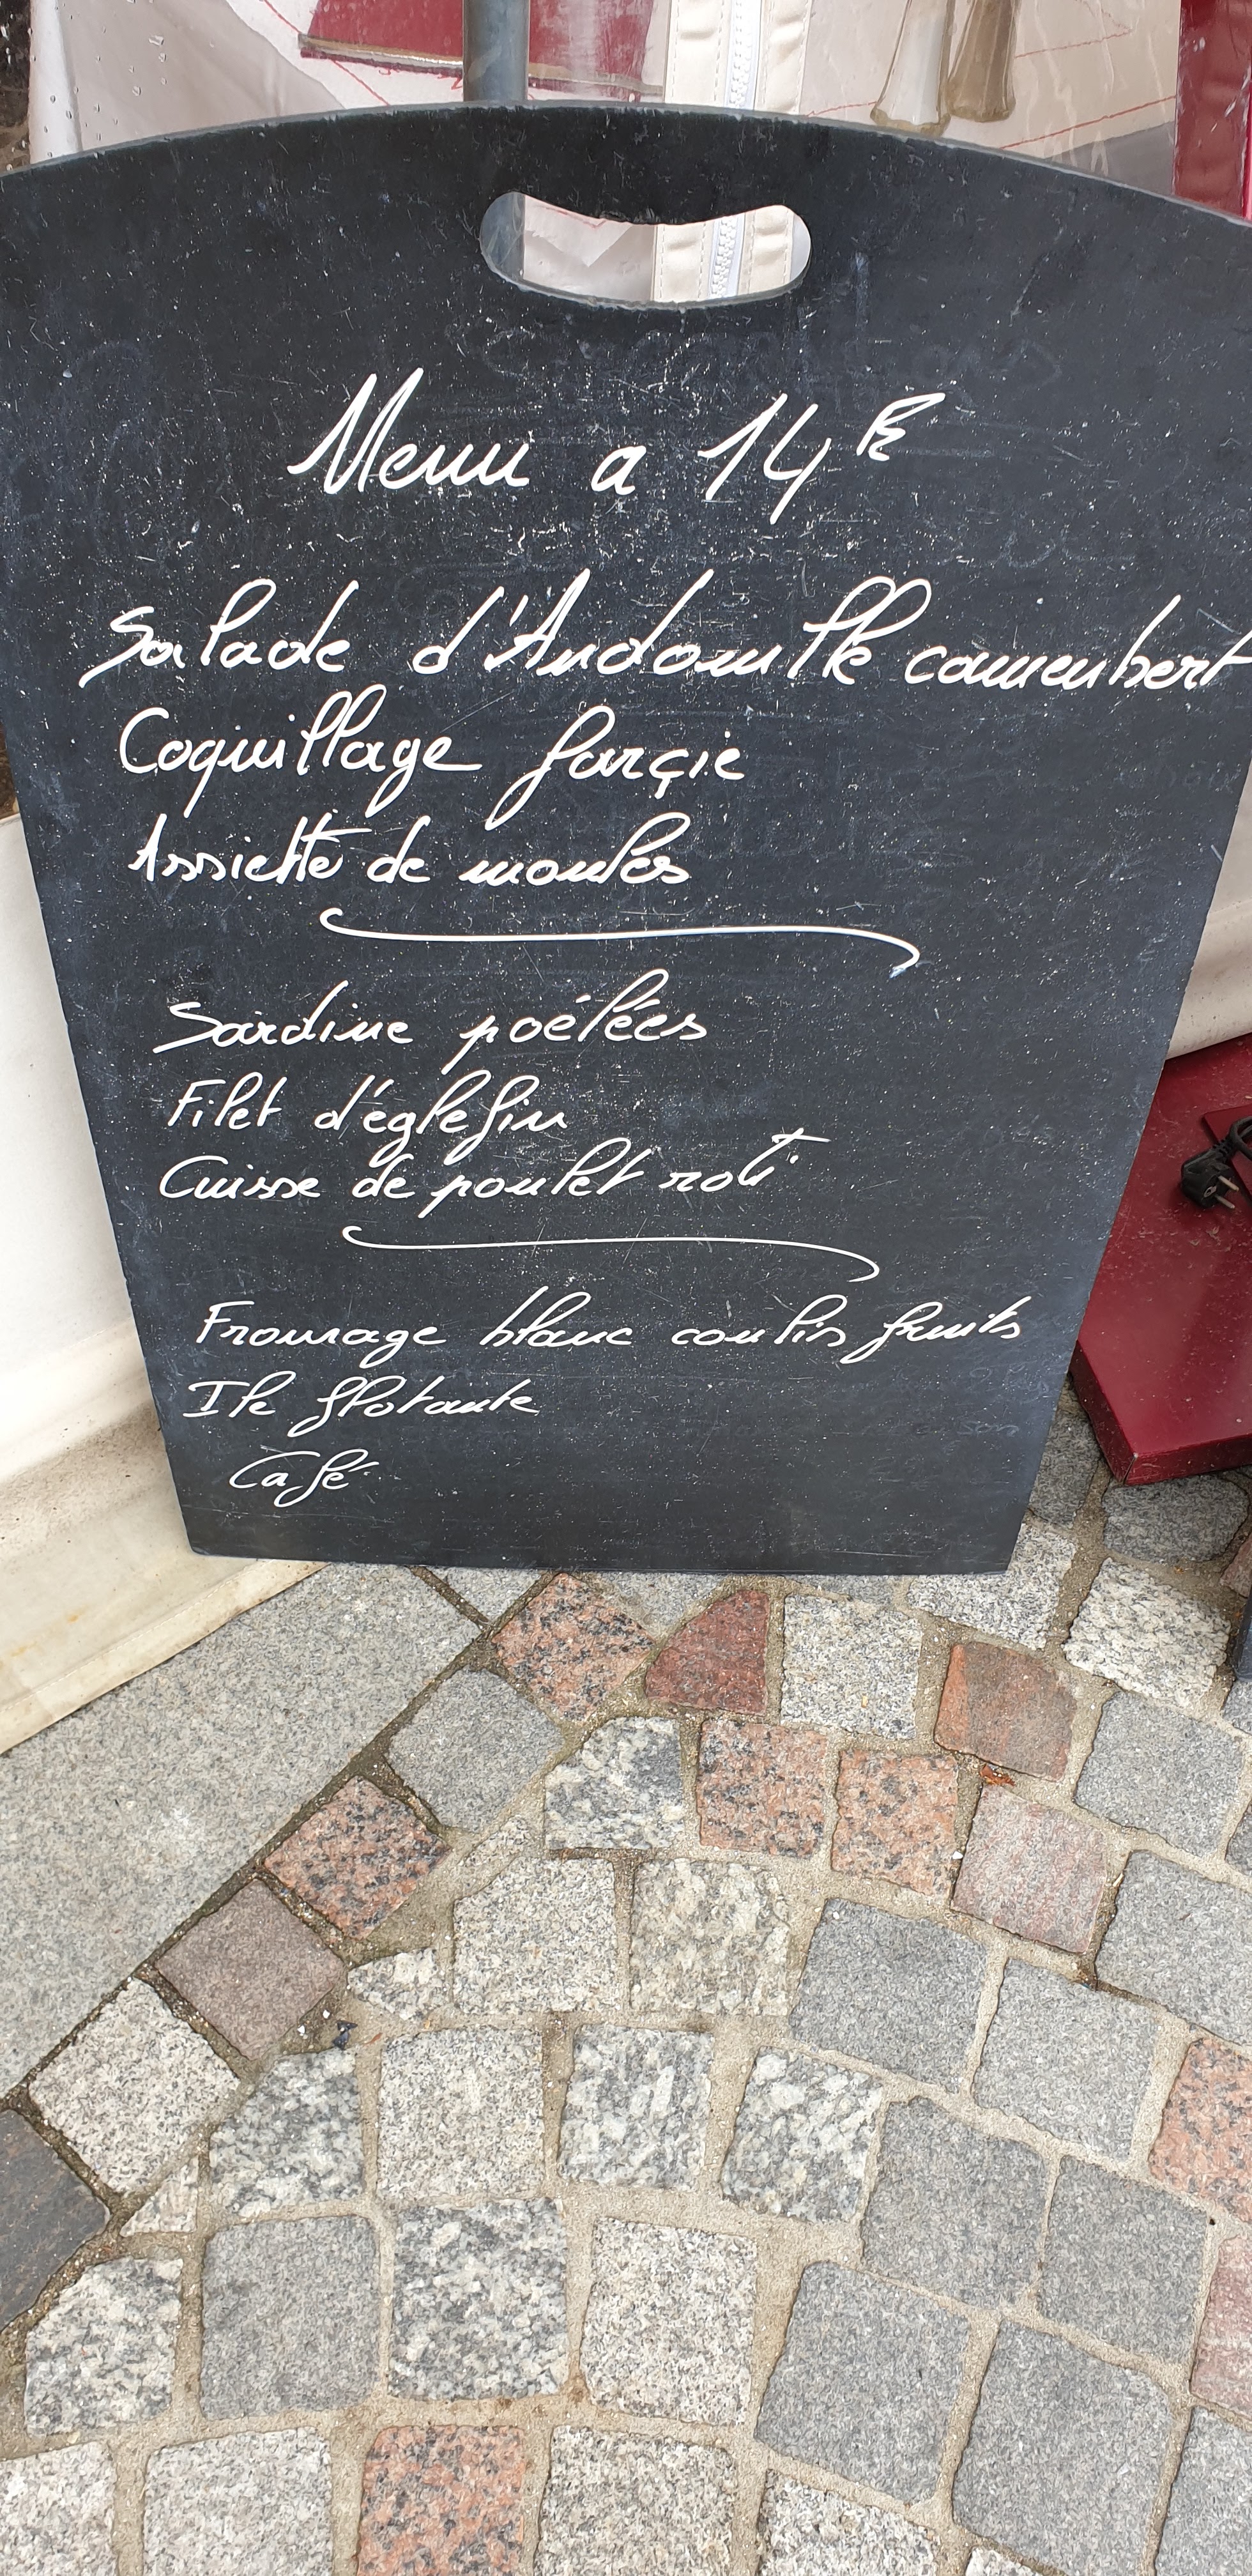 Menu a 14€
Salade d'Andouille camembert
Coquillage farçie
Assiette de moules
Sardine poélées
Filet d'églefin
Cuisse de poulet roti
Fromage blanc coulis fruits
Ile flotante
Café